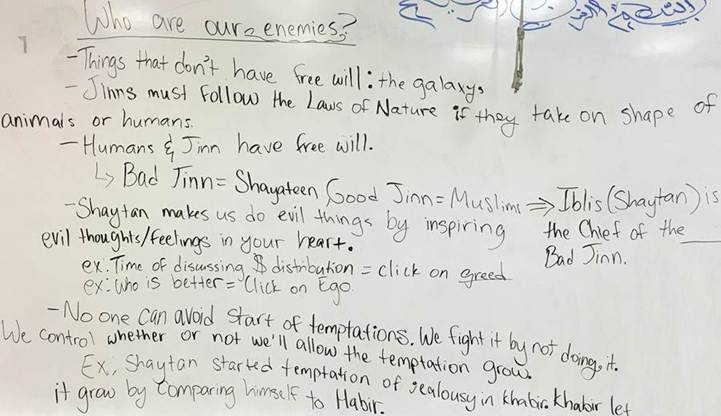 Who are our enemies?
- Things that don't have free will: the galaxy.
- Jinns must follow the Laws of Nature if they take on shape of
animals or humans.
- Humans & Jinn have free will.
↳ Bad Jinn = Shayateen Good Jinn = Muslims ⇒ Iblis (Shaytan) is
the Chief of the
Bad Jinn.
- Shaytan makes us do evil things by inspiring
evil thoughts/feelings in your heart.
ex: Time of discussing $ distribution = click on greed
ex: Who is better = Click on Ego.
- No one can avoid start of temptations. We fight it by not doing it.
We control whether or not we'll allow the temptation grow.
Ex: Shaytan started temptation of jealousy in khabir. khabir let
it grow by comparing himself to Habir.